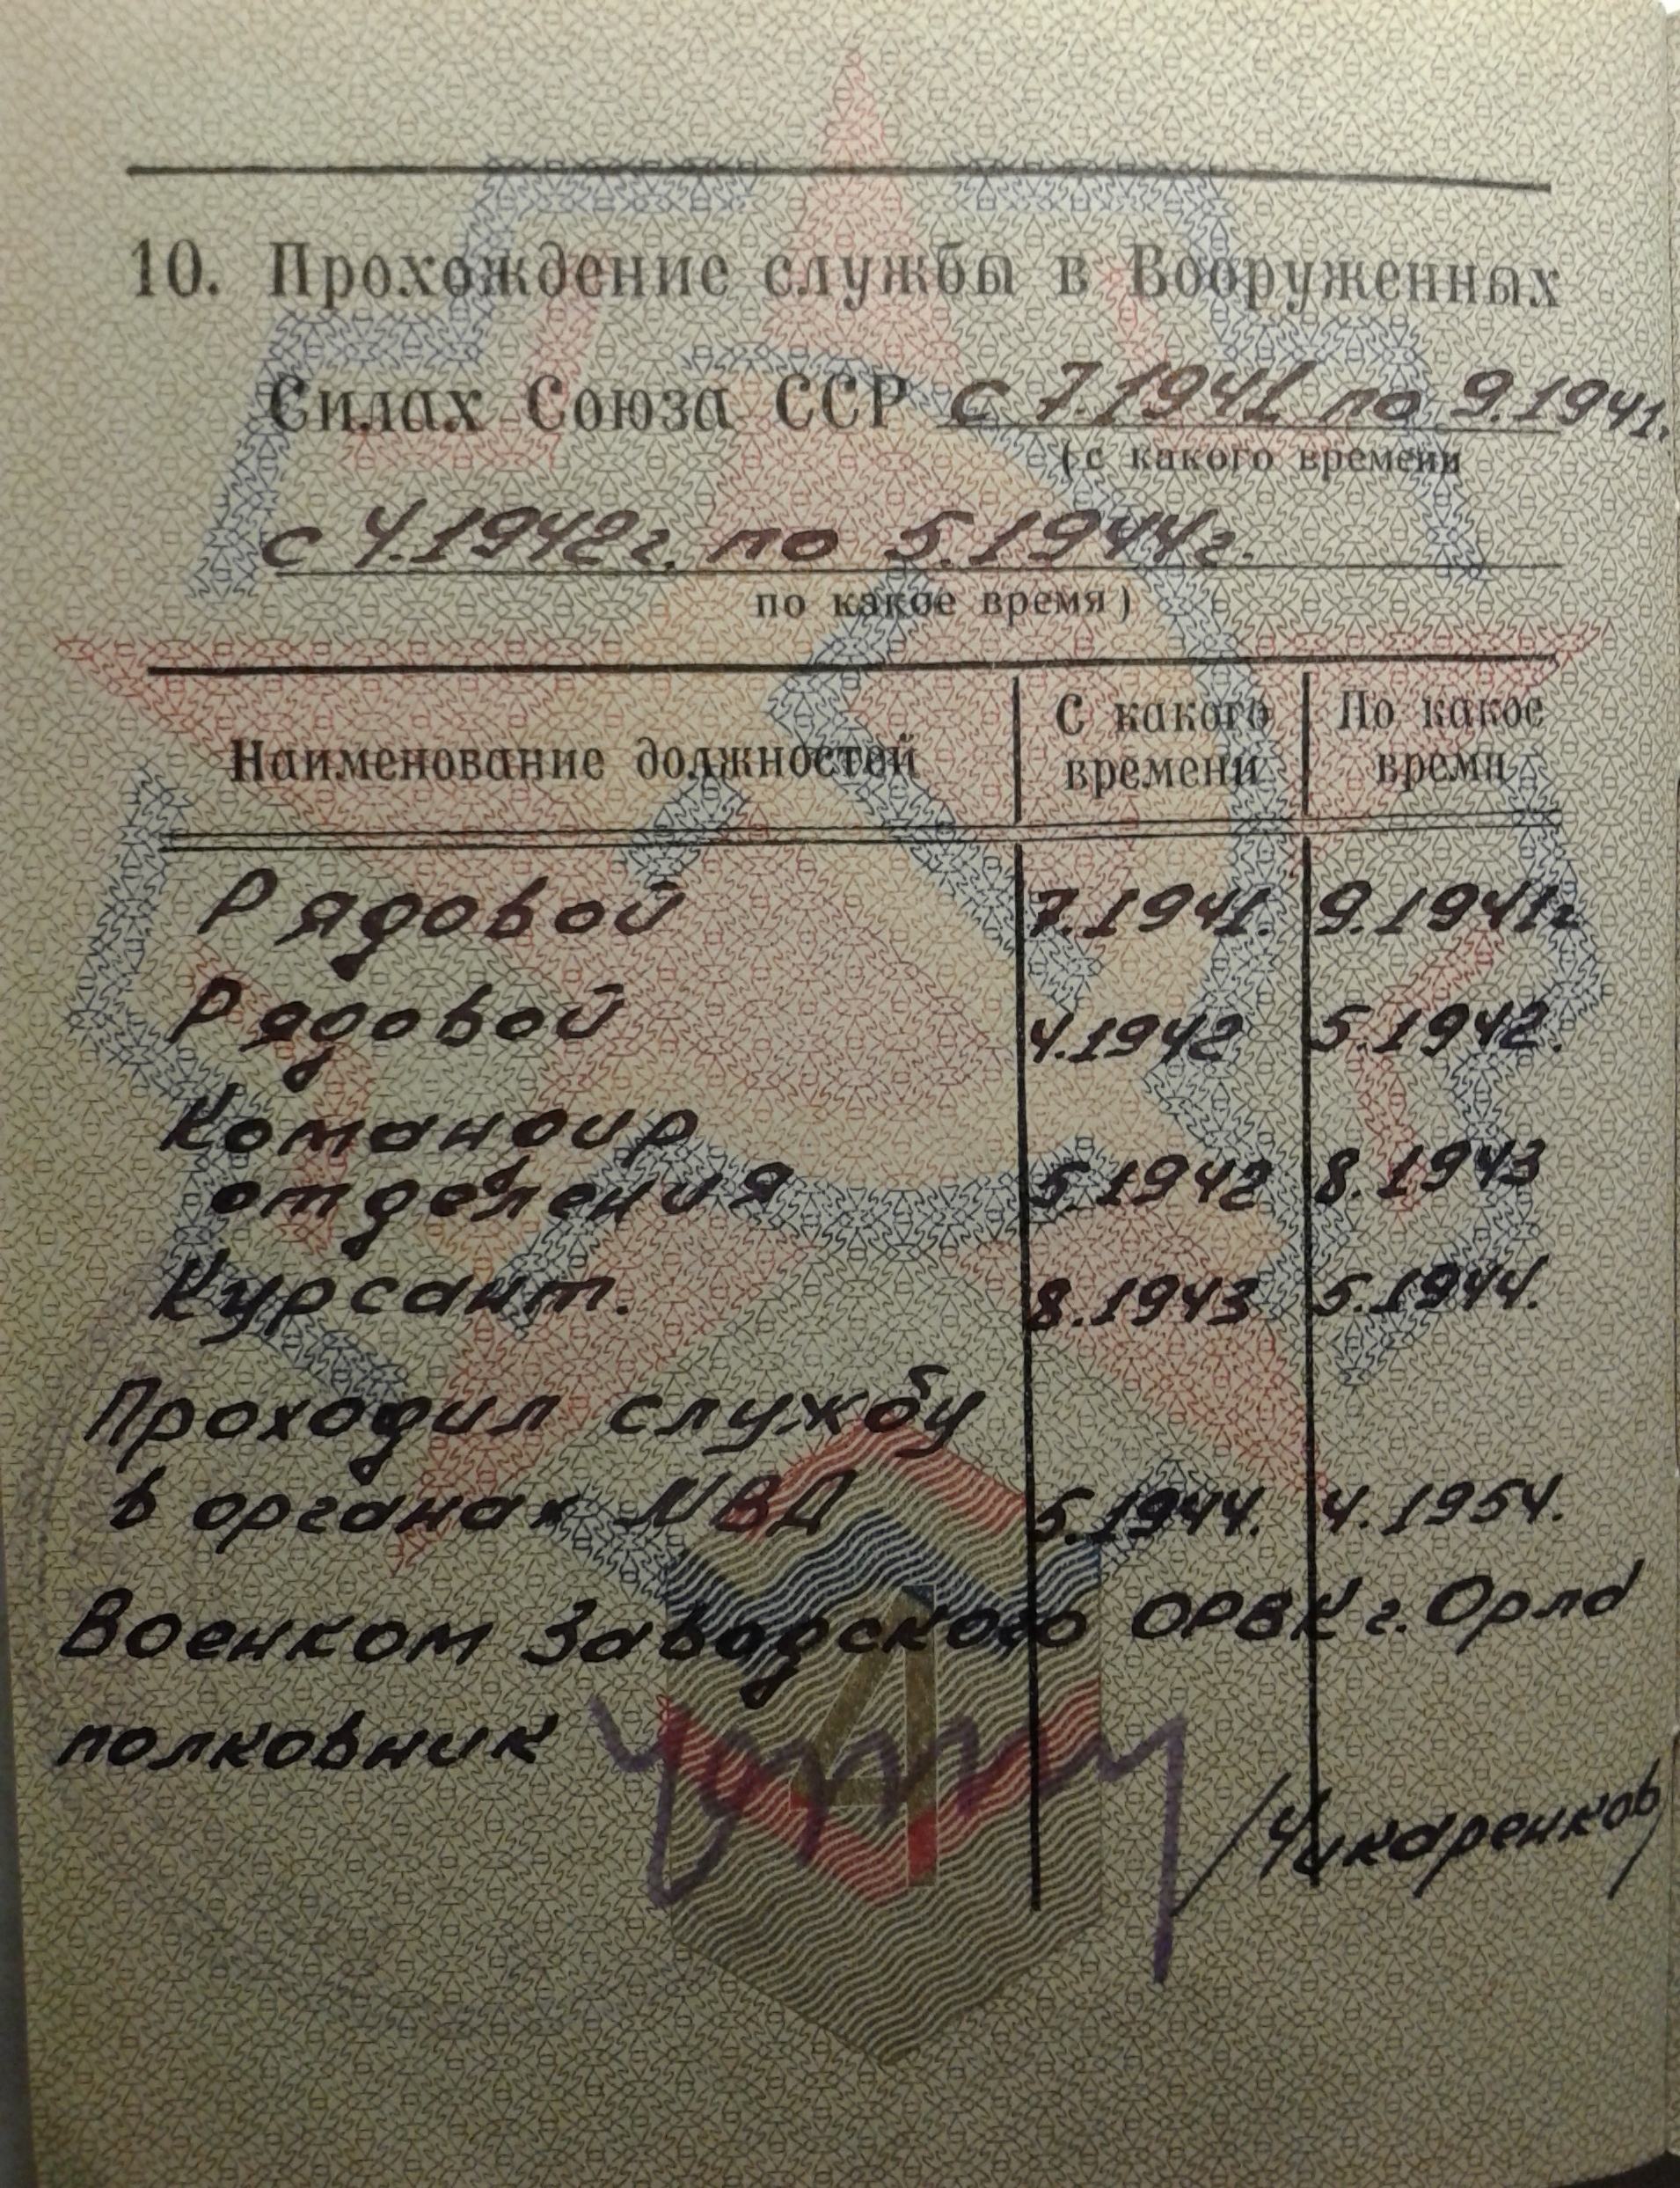 10. Прохождение службы в Вооруженных
Силах Союза ССР с 7.1941 по 9.1941.
(с какого времени
с 4.1942г. по 5.1944г.
по какое время)
Наименование должностей С какого времени По какое время
Рядовой 7.1941. 9.1941г
Рядовой 4.1942 5.1942.
Командир
отделения 5.1942 8.1943
Курсант. 8.1943 5.1944.
Проходил службу
в органах МВД 5.1944. 4.1954.
Военком Заводского ОРВК г. Орла
полковник
/Чикаренков/
4